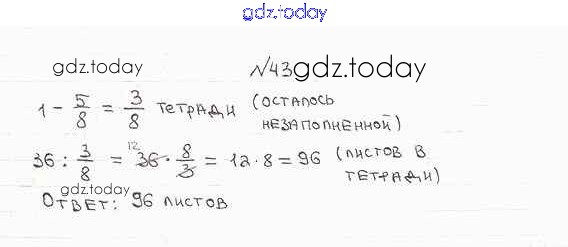 gdz.today
gdz.today №43 gdz.today
1 - 5/8 = 3/8 тетради (осталось
незаполненной)
36 : 3/8 = 36 12 · 8/3 = 12 · 8 = 96 (листов в
тетради)
gdz.today
Ответ: 96 листов